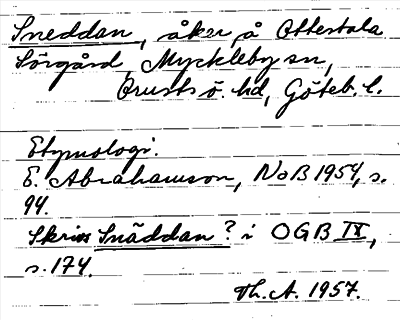 Sneddan, åker å Ottestala
Sörgård, Myckleby sn,
Orusts ö. hd, Göteb. l.
Etymologi.
E. Abrahamson, NoB 1954, s.
94.
Skrives Snäddan? i OGB IX,
s. 174.
Th. A. 1957.